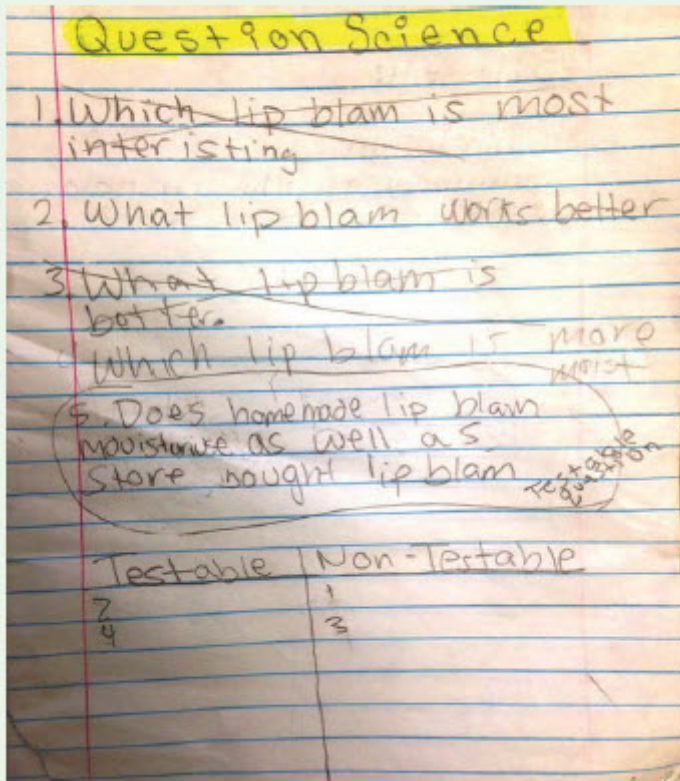 Question Science
1. Which lip blam is most
interisting
2. What lip blam works better
3. What lip blam is
better.
4 Which lip blam is more
moist
5. Does homemade lip blam
mouisturise as well as
Store bought lip blam
Testable
Question
Testable | Non-Testable
2 1
4 3